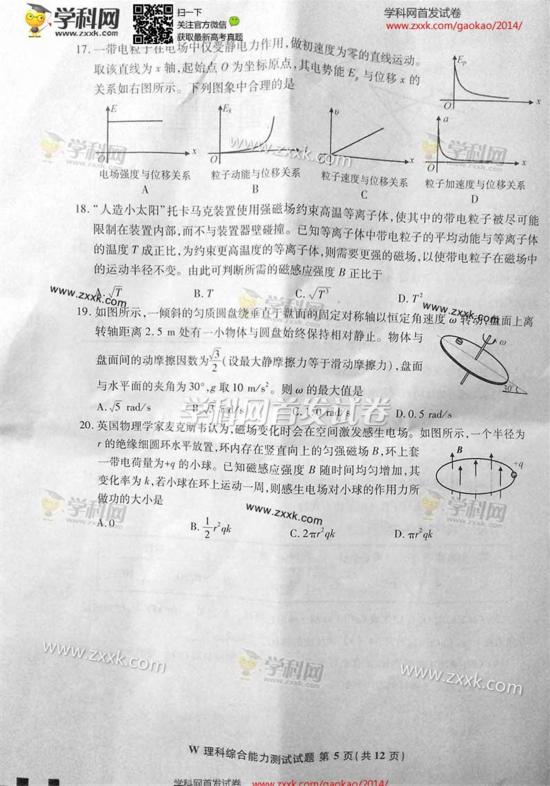 学科网
WWW.ZXXK.COM
扫一下
关注官方微信
获取最新高考真题
学科网首发试卷
www.zxxk.com/gaokao/2014/
17. 一带电粒子在电场中仅受静电力作用,做初速度为零的直线运动。
取该直线为 x 轴,起始点 O 为坐标原点,其电势能 Ep 与位移 x 的
关系如右图所示。下列图象中合理的是
Ep
O
x
E
O
x
Ek
O
x
υ
O
x
a
O
x
电场强度与位移关系 粒子动能与位移关系 粒子速度与位移关系 粒子加速度与位移关系
A B C D
18. “人造小太阳”托卡马克装置使用强磁场约束高温等离子体,使其中的带电粒子被尽可能
限制在装置内部,而不与装置器壁碰撞。已知等离子体中带电粒子的平均动能与等离子体
的温度 T 成正比,为约束更高温度的等离子体,则需要更强的磁场,以使带电粒子在磁场中
的运动半径不变。由此可判断所需的磁感应强度 B 正比于
A. √T B. T C. √T³ D. T²
19. 如图所示,一倾斜的匀质圆盘绕垂直于盘面的固定对称轴以恒定角速度 ω 转动,盘面上离
转轴距离 2.5 m 处有一小物体与圆盘始终保持相对静止。物体与
盘面间的动摩擦因数为 √3/2 (设最大静摩擦力等于滑动摩擦力),盘面
与水平面的夹角为 30°,g 取 10 m/s²。则 ω 的最大值是
ω
30°
A. √5 rad/s B. rad/s C. rad/s D. 0.5 rad/s
20. 英国物理学家麦克斯韦认为,磁场变化时会在空间激发感生电场。如图所示,一个半径为
r 的绝缘细圆环水平放置,环内存在竖直向上的匀强磁场 B,环上套
一带电荷量为 +q 的小球。已知磁感应强度 B 随时间均匀增加,其
变化率为 k,若小球在环上运动一周,则感生电场对小球的作用力所
做功的大小是
B
+q
A. 0 B. ½r²qk C. 2πr²qk D. πr²qk
W 理科综合能力测试试题 第 5 页(共 12 页)
学科网首发试卷 www.zxxk.com/gaokao/2014/